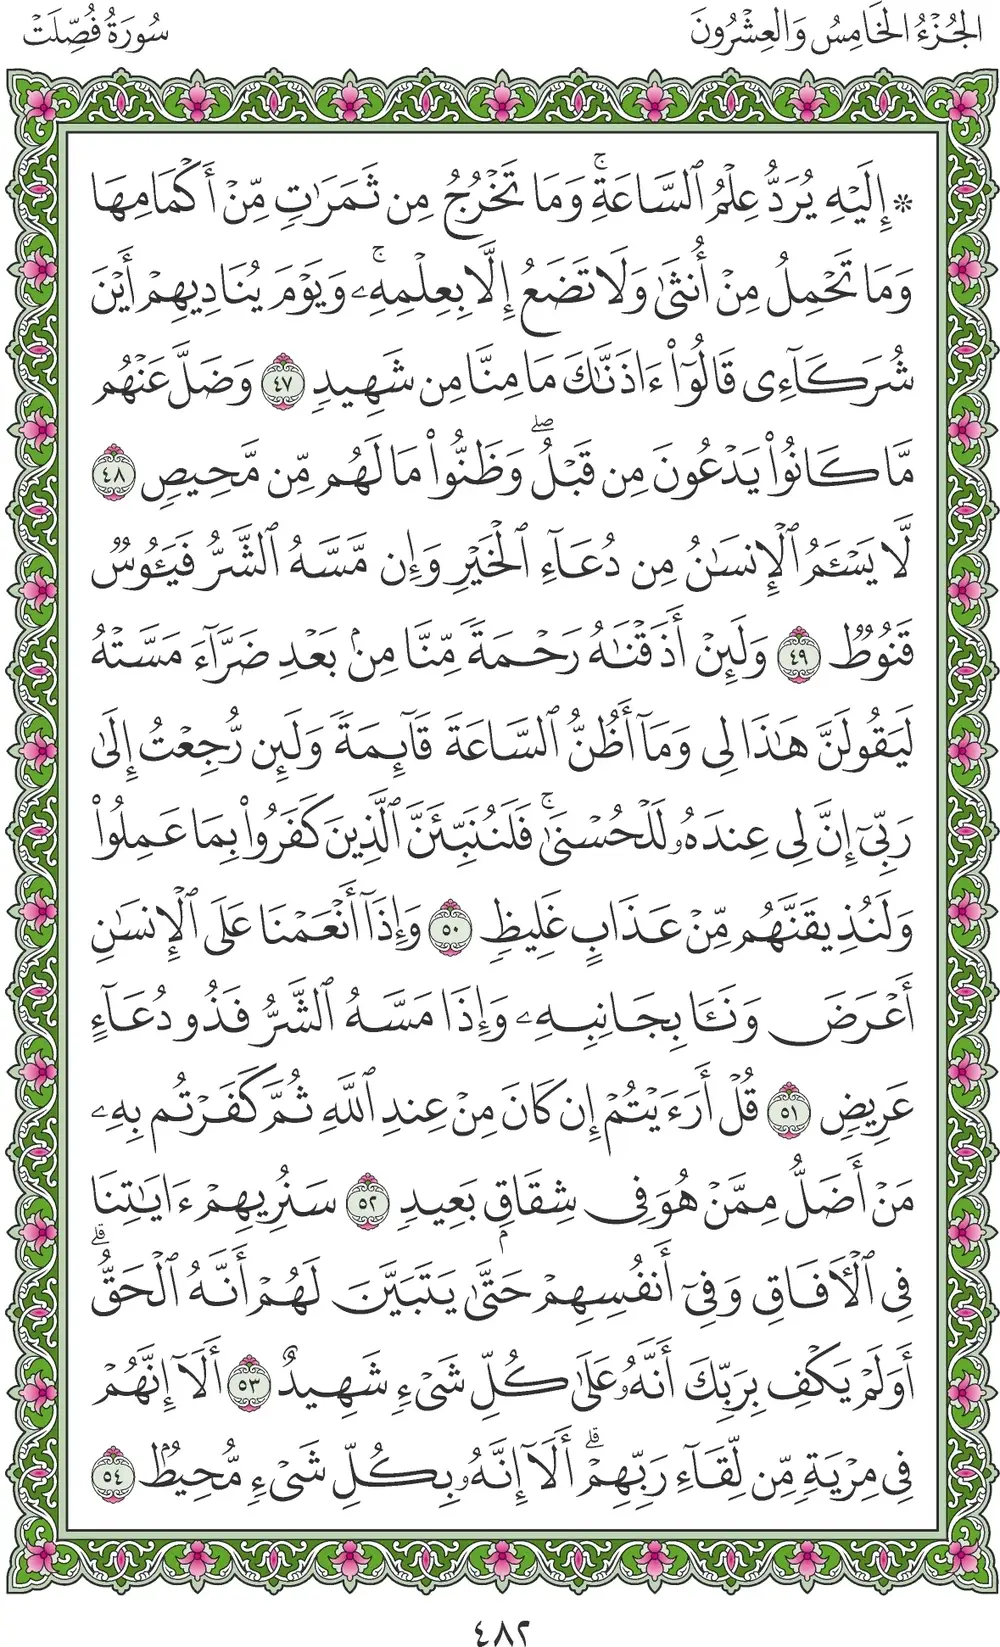 الجُزْءُ الخَامِسُ وَالعِشْرُونَ
سُورَةُ فُصِّلَتْ
۞ إِلَيْهِ يُرَدُّ عِلْمُ ٱلسَّاعَةِۚ وَمَا تَخْرُجُ مِن ثَمَرَٰتٍ مِّنْ أَكْمَامِهَا
وَمَا تَحْمِلُ مِنْ أُنثَىٰ وَلَا تَضَعُ إِلَّا بِعِلْمِهِۦۚ وَيَوْمَ يُنَادِيهِمْ أَيْنَ
شُرَكَآءِى قَالُوٓا۟ ءَاذَنَّٰكَ مَا مِنَّا مِن شَهِيدٍ ٤٧ وَضَلَّ عَنْهُم
مَّا كَانُوا۟ يَدْعُونَ مِن قَبْلُۖ وَظَنُّوا۟ مَا لَهُم مِّن مَّحِيصٍ ٤٨
لَّا يَسْـَٔمُ ٱلْإِنسَٰنُ مِن دُعَآءِ ٱلْخَيْرِ وَإِن مَّسَّهُ ٱلشَّرُّ فَيَـُٔوسٌ
قَنُوطٌ ٤٩ وَلَئِنْ أَذَقْنَٰهُ رَحْمَةً مِّنَّا مِنۢ بَعْدِ ضَرَّآءَ مَسَّتْهُ
لَيَقُولَنَّ هَٰذَا لِى وَمَآ أَظُنُّ ٱلسَّاعَةَ قَآئِمَةً وَلَئِن رُّجِعْتُ إِلَىٰ
رَبِّىٓ إِنَّ لِى عِندَهُۥ لَلْحُسْنَىٰۚ فَلَنُنَبِّئَنَّ ٱلَّذِينَ كَفَرُوا۟ بِمَا عَمِلُوا۟
وَلَنُذِيقَنَّهُم مِّنْ عَذَابٍ غَلِيظٍ ٥٠ وَإِذَآ أَنْعَمْنَا عَلَى ٱلْإِنسَٰنِ
أَعْرَضَ وَنَـَٔا بِجَانِبِهِۦ وَإِذَا مَسَّهُ ٱلشَّرُّ فَذُو دُعَآءٍ
عَرِيضٍ ٥١ قُلْ أَرَءَيْتُمْ إِن كَانَ مِنْ عِندِ ٱللَّهِ ثُمَّ كَفَرْتُم بِهِۦ
مَنْ أَضَلُّ مِمَّنْ هُوَ فِى شِقَاقٍۭ بَعِيدٍ ٥٢ سَنُرِيهِمْ ءَايَٰتِنَا
فِى ٱلْـَٔافَاقِ وَفِىٓ أَنفُسِهِمْ حَتَّىٰ يَتَبَيَّنَ لَهُمْ أَنَّهُ ٱلْحَقُّۗ
أَوَلَمْ يَكْفِ بِرَبِّكَ أَنَّهُۥ عَلَىٰ كُلِّ شَىْءٍ شَهِيدٌ ٥٣ أَلَآ إِنَّهُمْ
فِى مِرْيَةٍ مِّن لِّقَآءِ رَبِّهِمْۗ أَلَآ إِنَّهُۥ بِكُلِّ شَىْءٍ مُّحِيطٌۢ ٥٤
٤٨٢